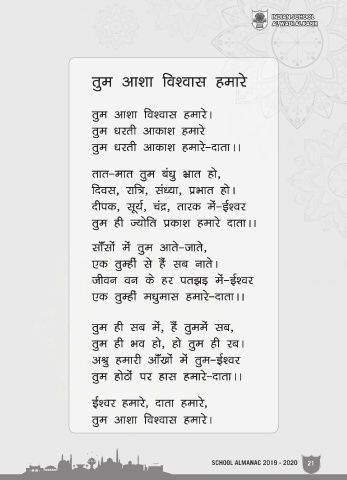 INDIAN SCHOOL
AL WADI AL KABIR
तुम आशा विश्वास हमारे
तुम आशा विश्वास हमारे।
तुम धरती आकाश हमारे
तुम धरती आकाश हमारे-दाता।।
तात-मात तुम बंधु भ्रात हो,
दिवस, रात्रि, संध्या, प्रभात हो।
दीपक, सूर्य, चंद्र, तारक में-ईश्वर
तुम ही ज्योति प्रकाश हमारे दाता।।
साँसों में तुम आते-जाते,
एक तुम्हीं से हैं सब नाते।
जीवन वन के हर पतझड़ में-ईश्वर
एक तुम्हीं मधुमास हमारे-दाता।।
तुम ही सब में, हैं तुममें सब,
तुम ही भव हो, हो तुम ही रब।
अश्रु हमारी आँखों में तुम-ईश्वर
तुम होठों पर हास हमारे-दाता।।
ईश्वर हमारे, दाता हमारे,
तुम आशा विश्वास हमारे।
SCHOOL ALMANAC 2019 - 2020 21